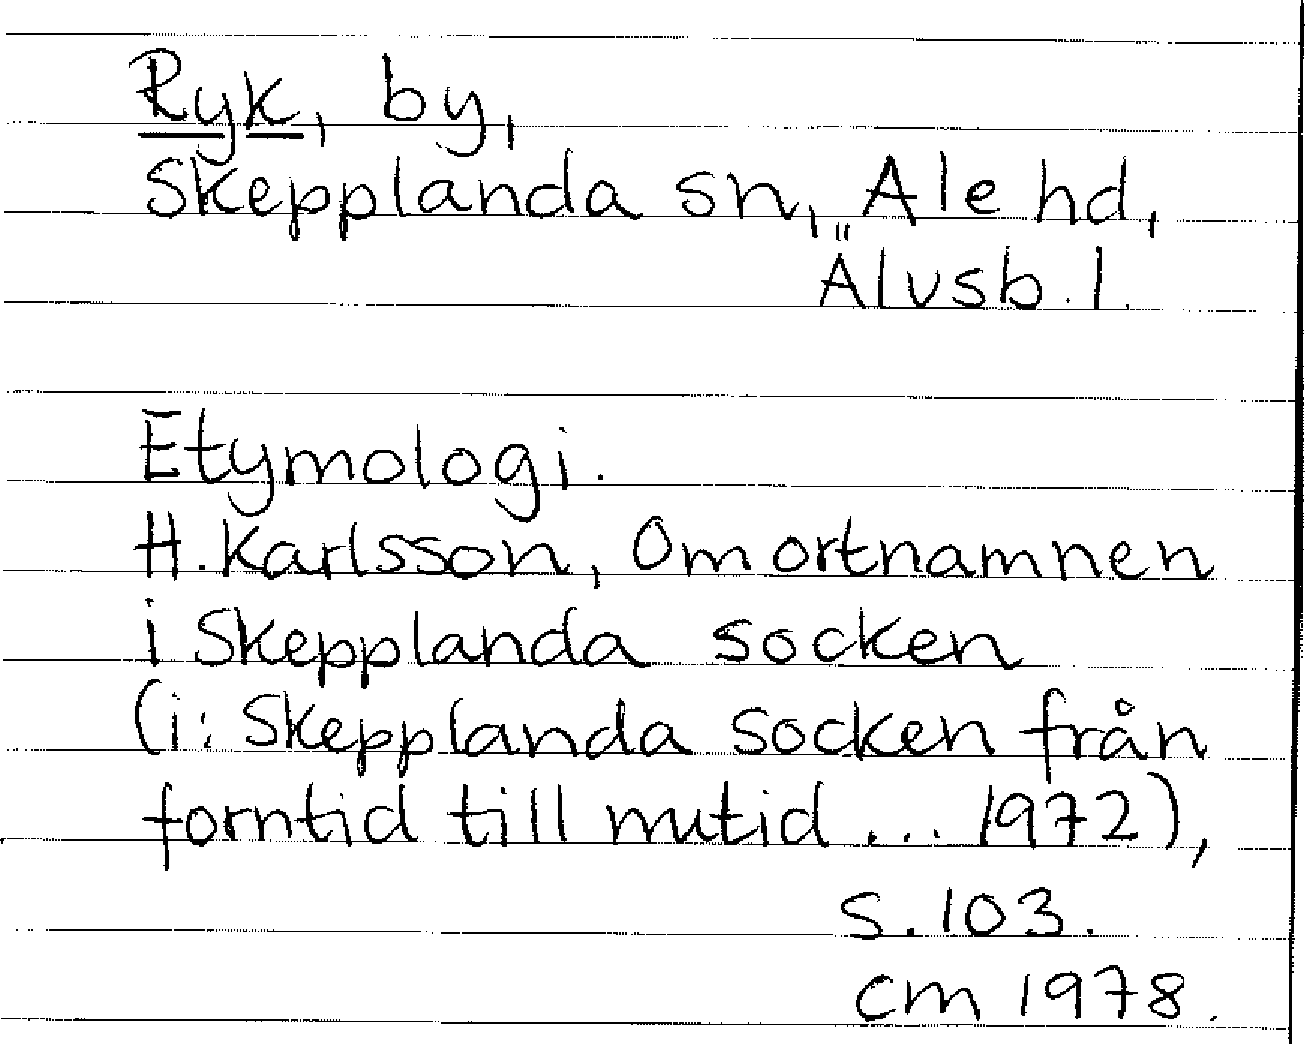 Ryk, by,
Skepplanda sn, Ale hd,
Älvsb. l.
Etymologi.
H. Karlsson, Om ortnamnen
i Skepplanda socken
(i: Skepplanda socken från
forntid till nutid ... 1972),
s. 103.
CM 1978.